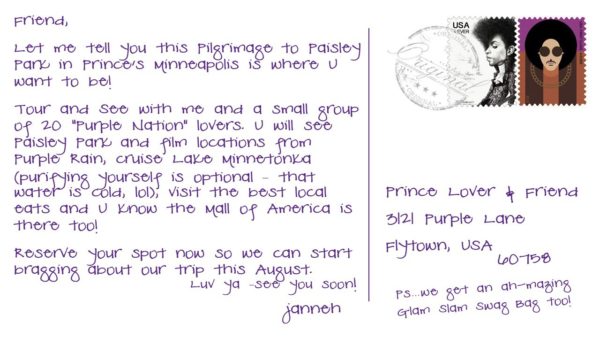 Friend,
Let me tell you this Pilgrimage to Paisley
Park in Prince's Minneapolis is where U
want to be!
Tour and see with me and a small group
of 20 "Purple Nation" lovers. U will see
Paisley Park and film locations from
Purple Rain, cruise Lake Minnetonka
(purifying yourself is optional - that
water is cold, lol), visit the best local
eats and U know the Mall of America is
there too!
Reserve your spot now so we can start
bragging about our trip this August.
Luv ya -see you soon!
janneh
USA
Prince Lover & Friend
3121 Purple Lane
Flytown, USA
60758
PS...we get an ah-mazing
Glam Slam Swag Bag too!